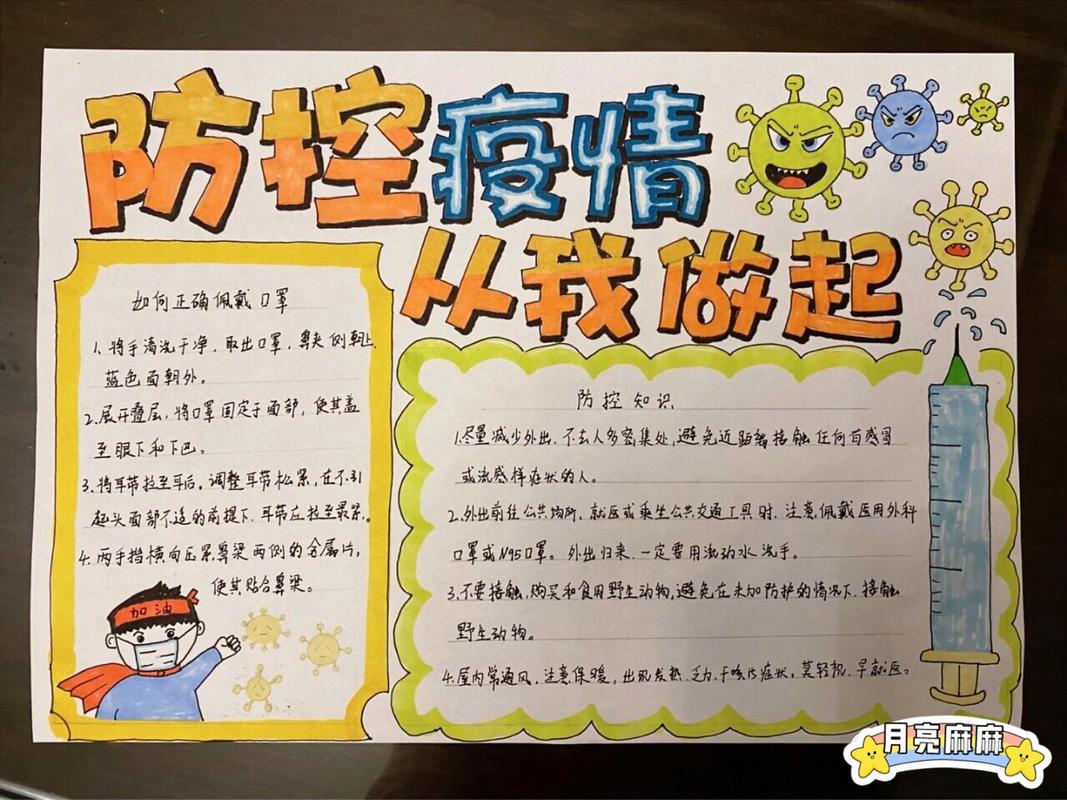 防控疫情
从我做起
如何正确佩戴口罩
1、将手清洗干净,取出口罩,鼻夹侧朝上,
蓝色面朝外。
2.展开叠层,将口罩固定于面部,使其盖
至眼下和下巴。
3.将耳带拉至耳后,调整耳带松紧,在不引
起头面部不适的前提下,耳带应拉至最紧。
4.两手指横向压紧鼻梁两侧的金属片,
使其贴合鼻梁。
加油
防控知识
1.尽量减少外出,不去人多密集处,避免近距离接触任何有感冒
或流感样症状的人。
2.外出前往公共场所,就医或乘坐公共交通工具时,注意佩戴医用外科
口罩或N95口罩。外出归来,一定要用流动水洗手。
3.不要接触,购买和食用野生动物,避免在未加防护的情况下,接触
野生动物。
4.屋内常通风,注意保暖,出现发热、乏力、干咳等症状,莫轻视,早就医。
月亮麻麻